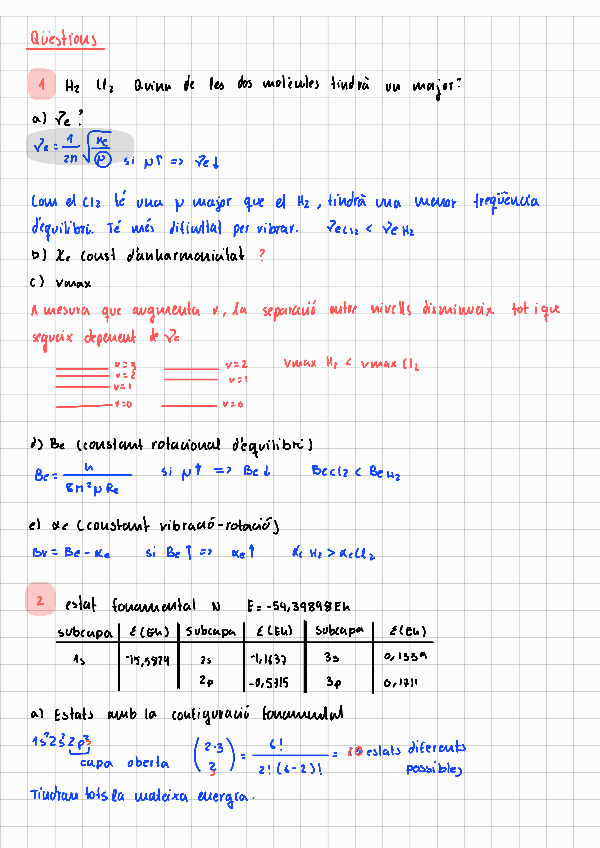 Qüestions
1 H₂ Cl₂ Quina de les dos molècules tindrà un major:
a) ṽe?
ṽe = 1/2π √(Ke/μ) si μ↑ => ṽe↓
Com el Cl₂ té una μ major que el H₂, tindrà una menor freqüència
d'equilibri. Té més dificultat per vibrar. ṽe Cl₂ < ṽe H₂
b) Xe const d'anharmonicitat ?
c) vmax
A mesura que augmenta v, la separació entre nivells disminueix tot i que
segueix depenent de ṽe
v=3
v=2 v=2 vmax H₂ < vmax Cl₂
v=1 v=1
v=0 v=0
d) Be (constant rotacional d'equilibri)
Be = h/8π²μRe si μ↑ => Be↓ Be Cl₂ < Be H₂
e) αe (constant vibració-rotació)
Bv = Be - αe si Be↑ => αe↑ αe H₂ > αe Cl₂
2 estat fonamental N E = -54,39898 Eh
subcapa E(Eh) subcapa E(Eh) subcapa E(Eh)
1s -15,5824 2s -1,1637 3s 0,1339
2p -0,5715 3p 0,1711
a) Estats amb la configuració fonamental
1s²2s²2p³ (2·3 3) = 6!/2!(6-2)! = estats diferents
capa oberta possibles
Tindran tots la mateixa energia.